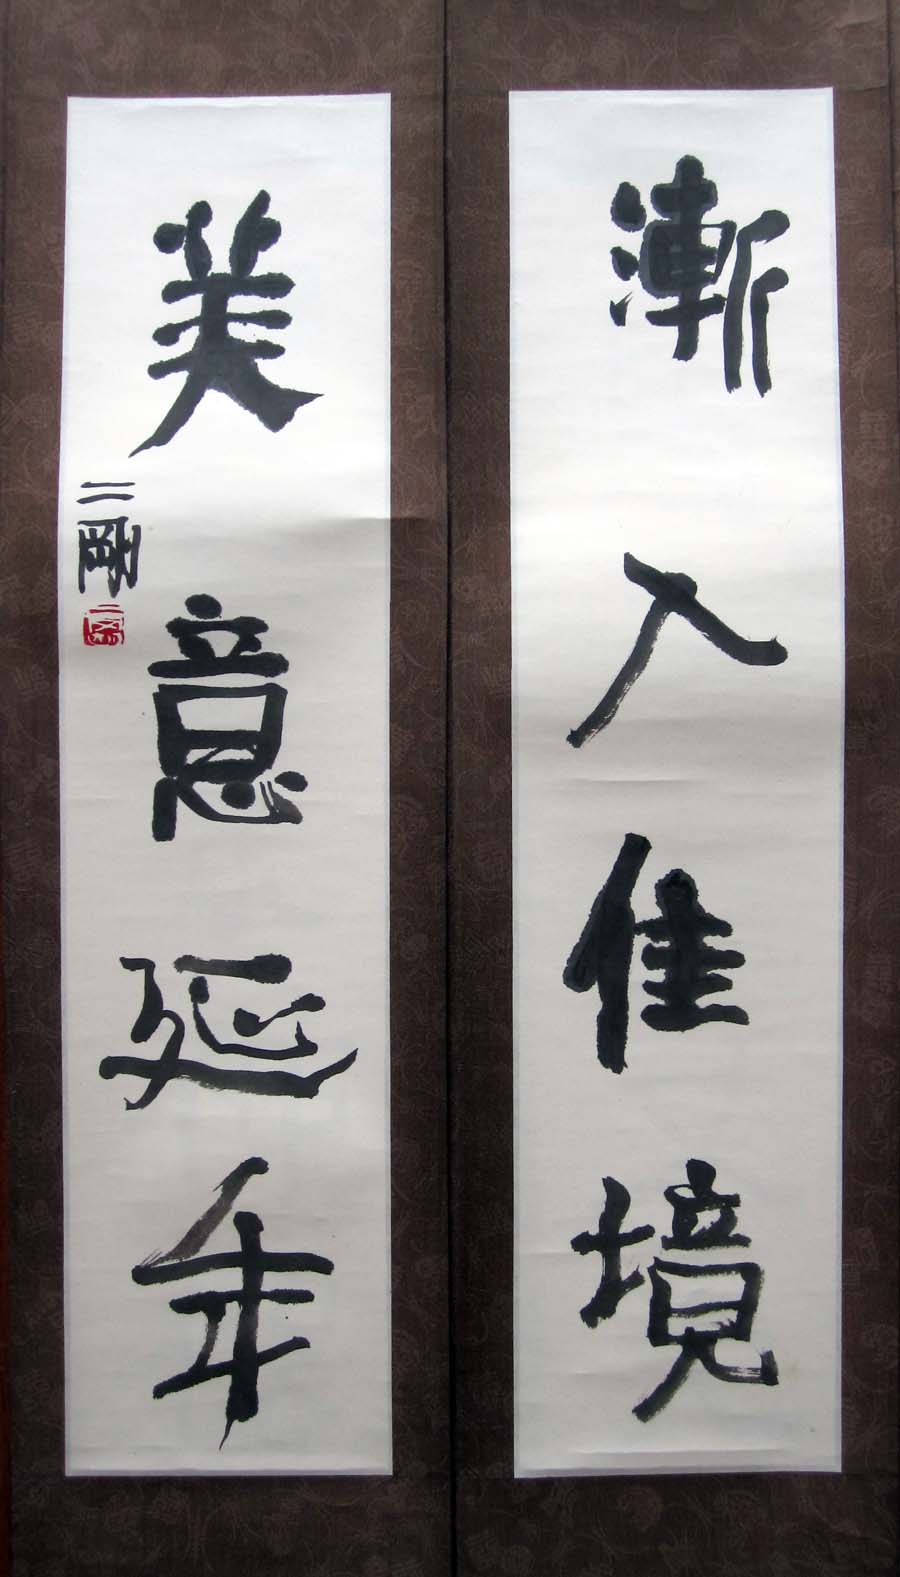 漸入佳境
美意延年